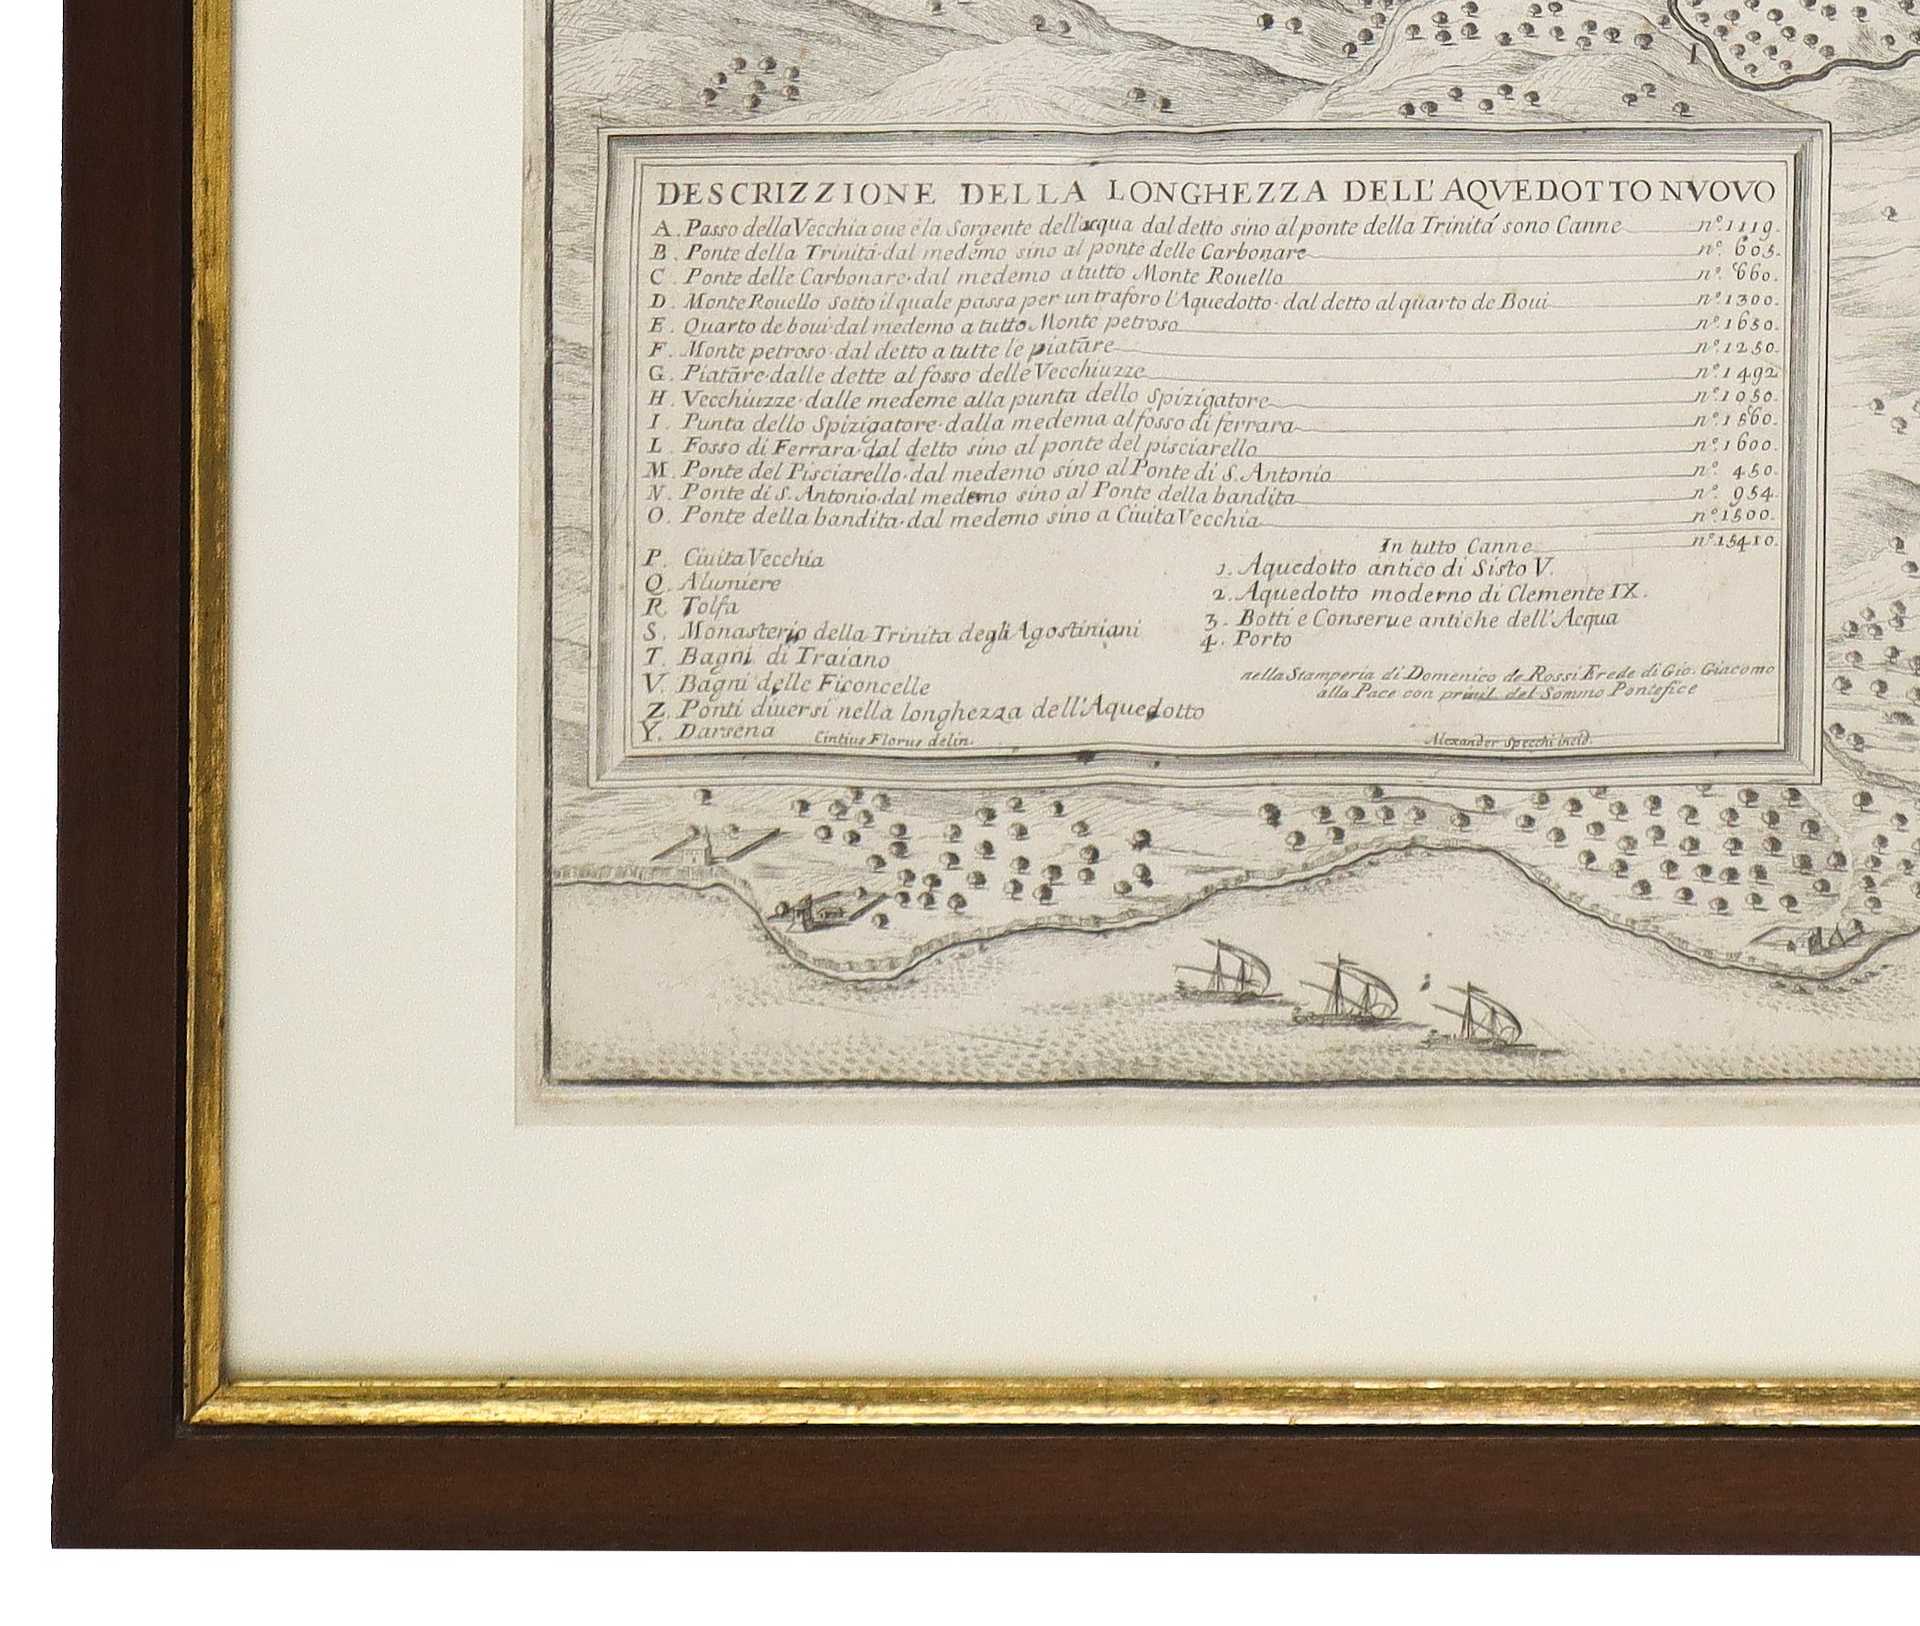 DESCRIZZIONE DELLA LONGHEZZA DELL'AQVEDOTTO NVOVO
A. Passo della Vecchia oue é la Sorgente dell'acqua dal detto sino al ponte della Trinitá sono Canne nº. 1119.
B. Ponte della Trinitá. dal medemo sino al ponte delle Carbonare nº. 605.
C. Ponte delle Carbonare. dal medemo a tutto Monte Rouello nº. 660.
D. Monte Rouello sotto il quale passa per un traforo l'Aquedotto. dal detto al quarto de Boui nº. 1300.
E. Quarto de boui. dal medemo a tutto Monte petroso nº. 1650.
F. Monte petroso. dal detto a tutte le piatāre nº. 1250.
G. Piatāre. dalle dette al fosso delle Vecchiuzze nº. 1492
H. Vecchiuzze. dalle medeme alla punta dello Spizigatore nº. 1050.
I. Punta dello Spizigatore. dalla medema al fosso di ferrara nº. 1560.
L. Fosso di Ferrara. dal detto sino al ponte del pisciarello nº. 1600.
M. Ponte del Pisciarello. dal medemo sino al Ponte di S. Antonio nº. 450.
N. Ponte di S. Antonio. dal medemo sino al Ponte della bandita nº. 954.
O. Ponte della bandita. dal medemo sino a Ciuita Vecchia nº. 1500.
In tutto Canne nº. 15410.
P. Ciuita Vecchia
Q. Alumiere
R. Tolfa
S. Monasterio della Trinita degli Agostiniani
T. Bagni di Traiano
V. Bagni delle Ficoncelle
Z. Ponti diuersi nella longhezza dell'Aquedotto
Y. Darsena
1. Aquedotto antico di Sisto V.
2. Aquedotto moderno di Clemente IX.
3. Botti e Conserue antiche dell'Acqua
4. Porto
nella Stamperia di Domenico de Rossi Erede di Gio. Giacomo
alla Pace con priuil. del Sommo Pontefice
Cintius Florus delin.
Alexander Specchi incid.
I